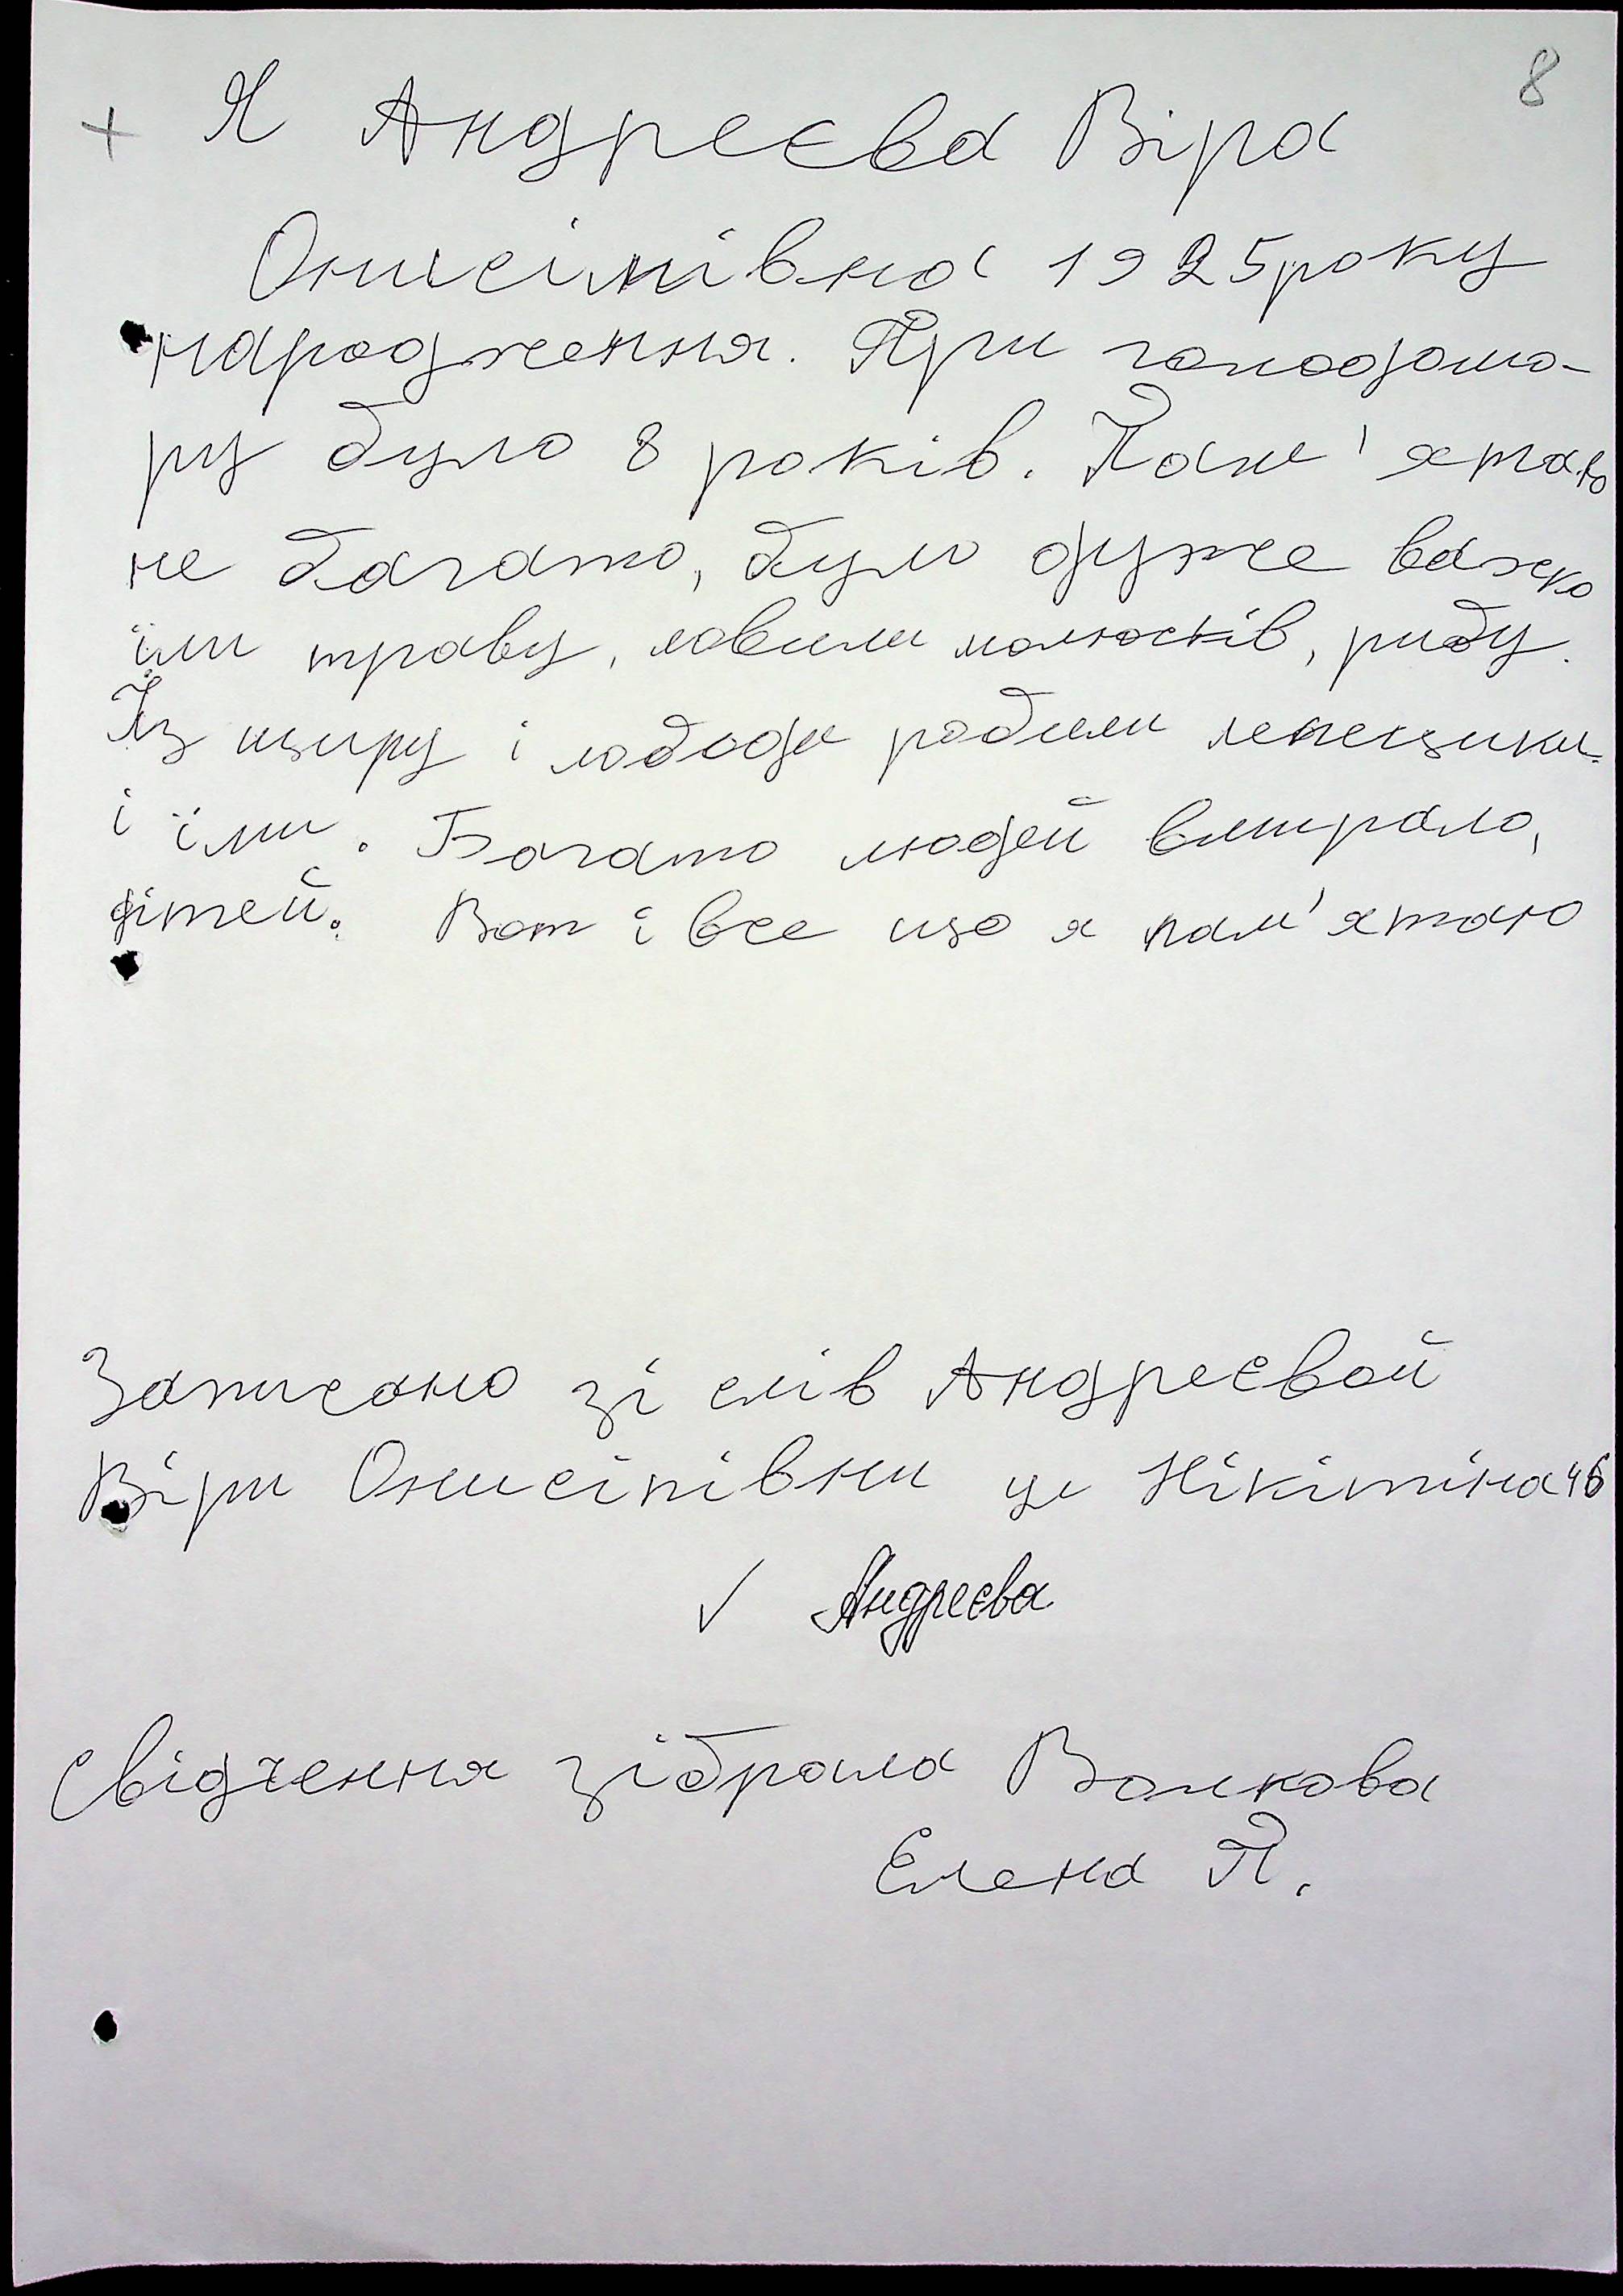 8
+ Я Андреєва Віра
Онисімівна 1925 року
народження. При голодомо-
ру було 8 років. Пам'ятаю
не багато, було дуже важко
їли траву, ловили молюсків, рибу.
Із щиру і лободи робили лепещики
і їли. Багато людей вмирало,
дітей. Вот і все що я пам'ятаю
Записано зі слів Андреєвой
Віри Онисімівни ул Нікітіна 46
✓ Андреєва
Свідчення зібрала Волкова
Елена П.